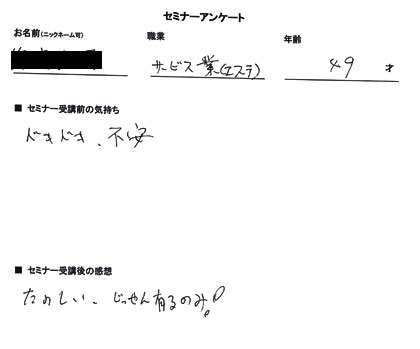 セミナーアンケート
お名前(ニックネーム可) 職業 年齢
サービス業(エステ) 49 才
■ セミナー受講前の気持ち
ドキドキ、不安
■ セミナー受講後の感想
たのしい、じっせん有るのみ!